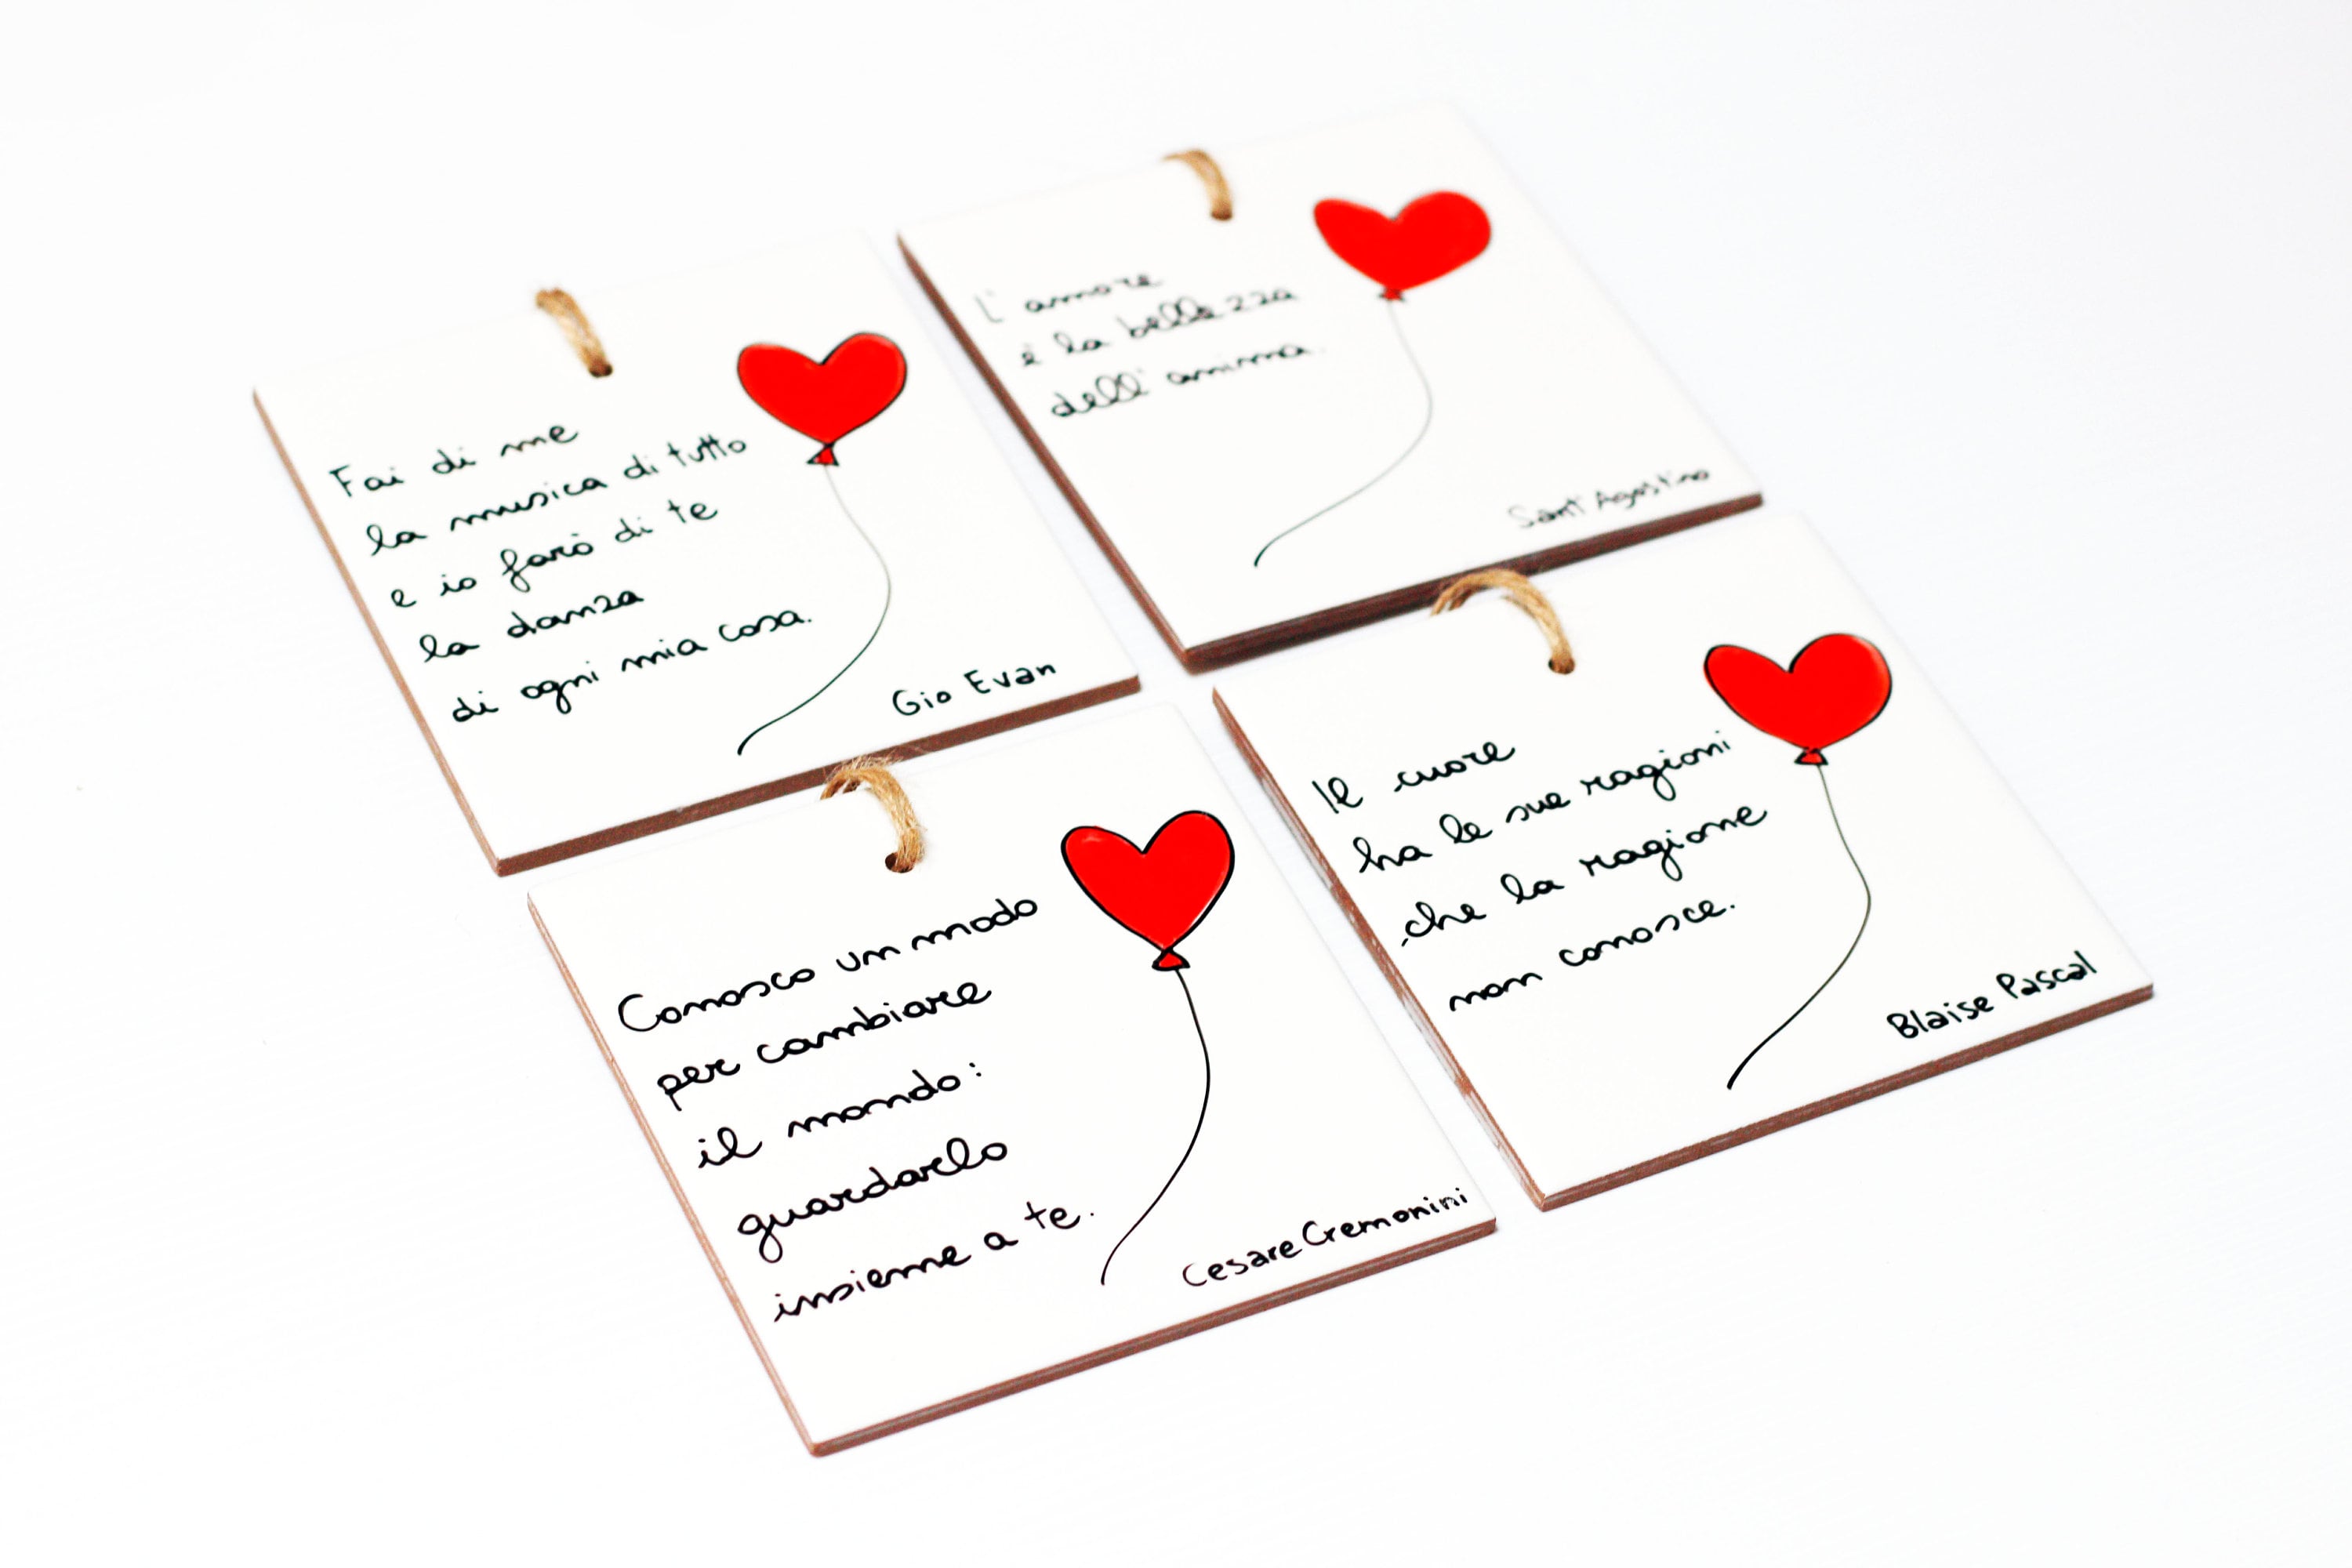 Fai di me
la musica di tutto
e io farò di te
la danza
di ogni mia cosa.
Gio Evan
L'amore
è la bellezza
dell'anima.
Sant'Agostino
Conosco un modo
per cambiare
il mondo:
guardarlo
insieme a te.
Cesare Cremonini
Il cuore
ha le sue ragioni
che la ragione
non conosce.
Blaise Pascal